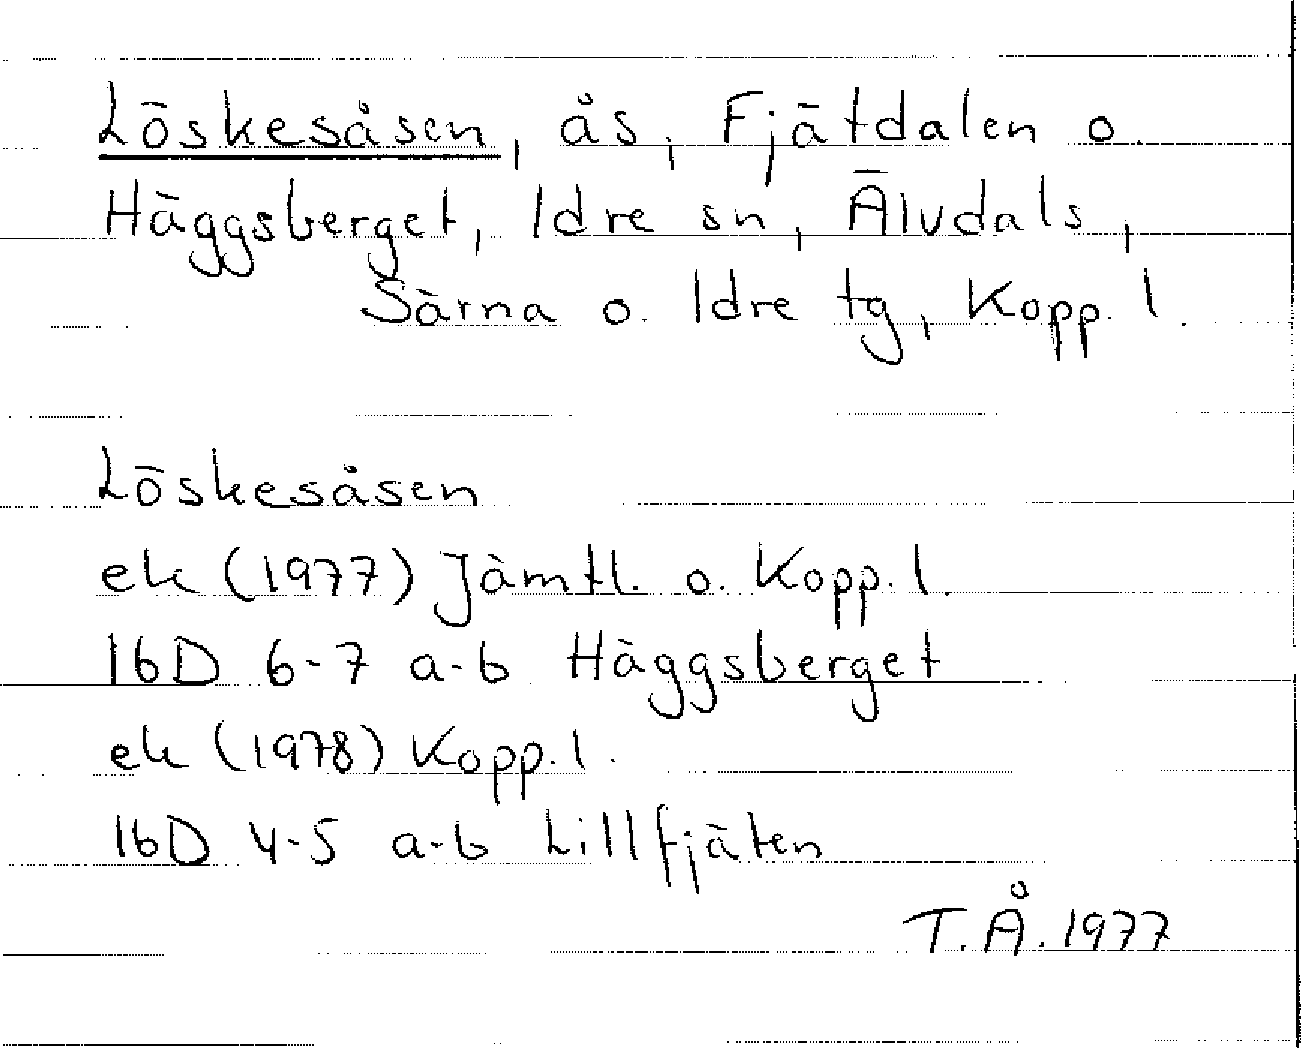 Löskesåsen, ås, Fjätdalen o.
Häggsberget, Idre sn, Älvdals,
Särna o. Idre tg, Kopp. l.
Löskesåsen
ek (1977) Jämtl. o. Kopp. l.
16D 6-7 a-b Häggsberget
ek (1978) Kopp. l.
16D 4-5 a-b Lillfjäten
T.Å. 1977